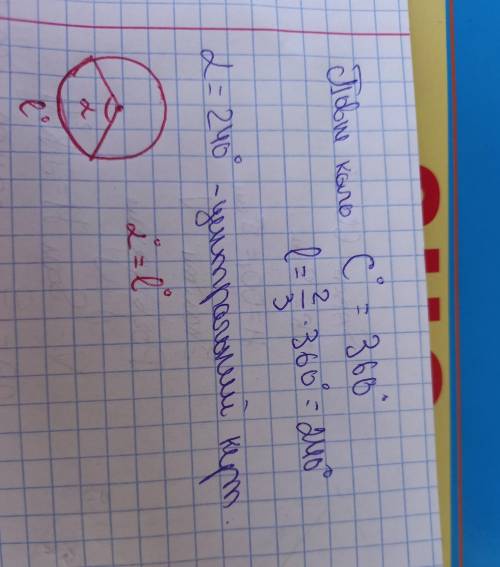 Повне коло C° = 360°
l = 2/3 · 360° = 240°
α = 240° - центральний кут.
α° = l°
α
l°